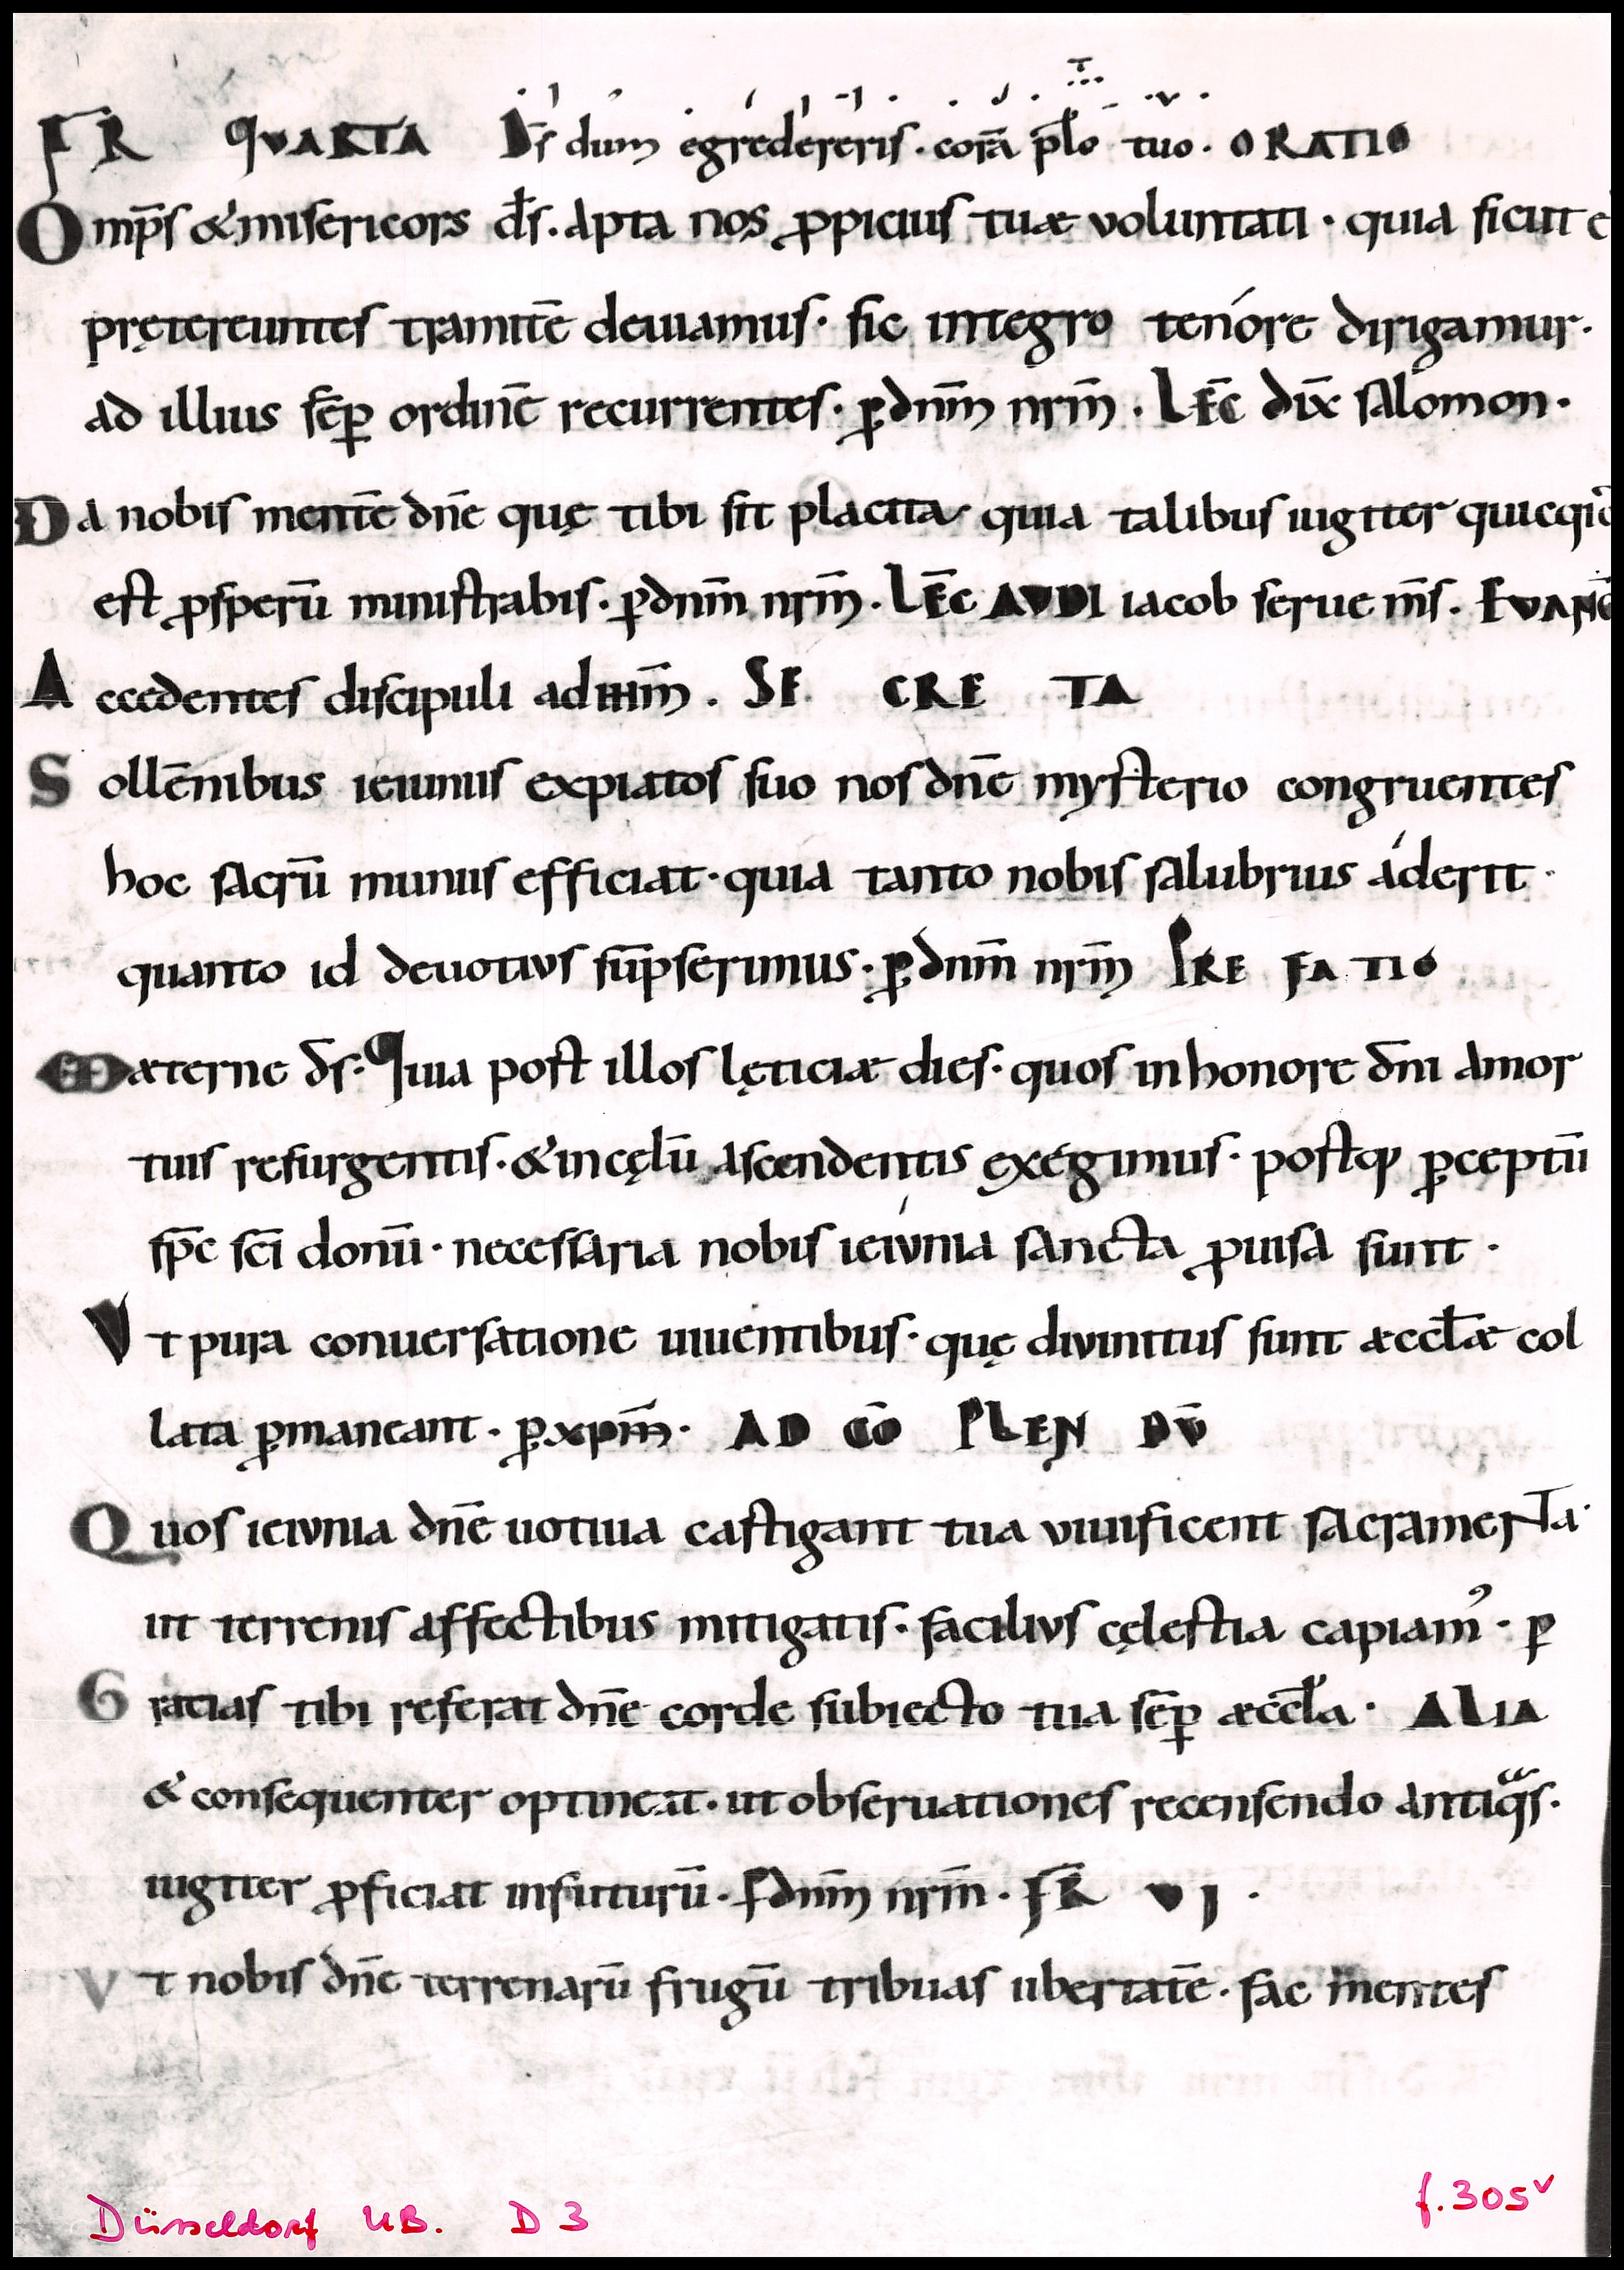 FR QVARTA D̄s dum egredereris · corā pło tuo · ORATIO
Omp̄s & misericors d̄s · Apta nos ꝓpicius tuæ voluntati · quia sicut e
pręterеuntes tramitē deuiamus · sic integro tenóre dirigamur ·
ad illius sēp ordinē recurrentes · ꝑ dnm̄ nrm̄ · LEC̄ dix̄ salomon ·
Da nobis mentē dn̄e quę tibi sit placita quia talibus iugiter quicqid
est ꝓsperū ministrabis · ꝑ dnm̄ nrm̄ · LEC̄ AVDI iacob serue m̄s · EVANG
Accedentes discipuli ad ihm̄ · SE CRE TA
Sollēnibus ieiuniis expiatos suo nos dn̄e mysterio congruentes
hoc sacrū munus efficiat · quia tanto nobis salubrius áderit ·
quanto id deuotius sūpserimus · ꝑ dnm̄ nrm̄ PRE FATIO
æterne d̄s · Quia post illos lęticiæ dies · quos in honore dn̄i Amor
tuis resurgentis · & in cęlū ascendentis exégimus · postq̨ ꝑceptū
sp̄c sc̄i donū · necessaria nobis ieiunia sancta ꝓuisa sunt ·
Vt pura conuersatione uiuentibus · quę divinitus sunt æccłæ col
lata ꝑmaneant · ꝑ xpm̄ · AD CŌ PLEN DV̄
Quos ieiunia dn̄e uotiua castigant tua viuificent sacramenta ·
ut terrenis affectibus mitigatis · facilius cęlestia capiam᾿ · ꝑ
Gratias tibi referat dn̄e corde subiecto tua sēp æccła · ALIA
& consequenter optineat · ut obseruationes recensendo antiqᵃs ·
iugiter ꝓficiat in futurū · ꝑ dnm̄ nrm̄ · FR̄ VI ·
Vt nobis dn̄e terrenarū frugū tribuas ubertatē · fac mentes
Düsseldorf UB. D 3 f. 305ᵛ